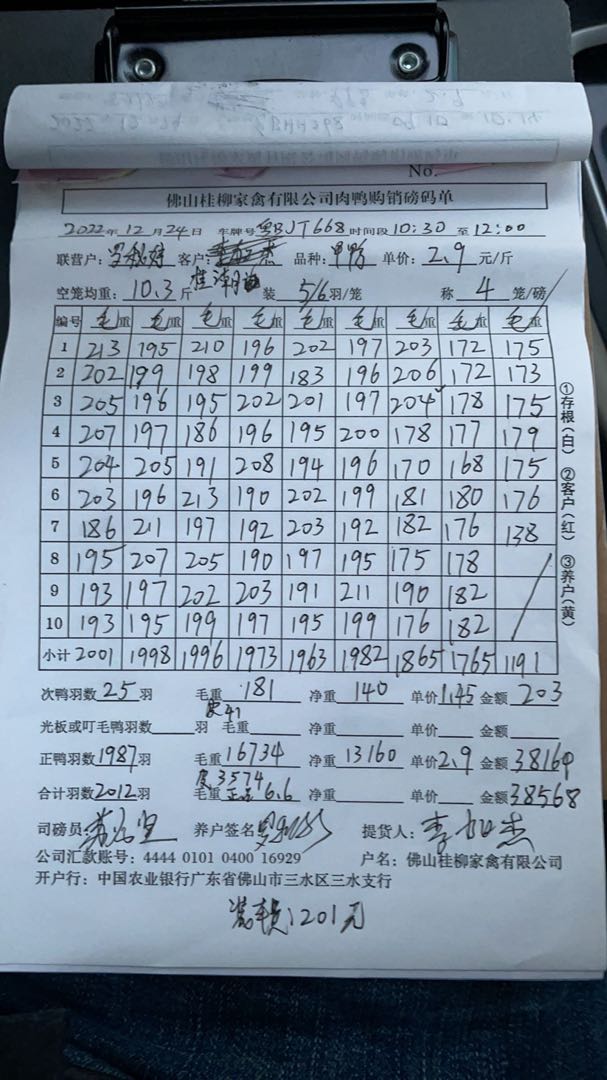 No.
佛山桂柳家禽有限公司肉鸭购销磅码单
2022年12月24日 车牌号粤BJT668时间段10:30至12:00
联营户: 客户: 杰 品种: 单价:2.9元/斤
空笼均重:10.3斤 装5/6羽/笼 称4笼/磅
编号 毛重 毛重 毛重 毛重 毛重 毛重 毛重 毛重 毛重
1 213 195 210 196 202 197 203 172 175
2 202 199 198 199 183 196 206 172 173
3 205 196 195 202 201 197 204 178 175
4 207 197 186 196 195 200 178 177 179
5 204 205 191 208 194 196 170 168 175
6 203 196 213 190 202 199 181 180 176
7 186 211 197 192 203 192 182 176 138
8 195 207 205 190 197 195 175 178
9 193 197 202 203 191 211 190 182
10 193 195 199 197 195 199 176 182
小计 2001 1998 1996 1973 1963 1982 1865 1765 1191
①存根(白) ②客户(红) ③养户(黄)
次鸭羽数25羽 毛重181 净重140 单价1.45 金额203
皮41
光板或叮毛鸭羽数 羽 毛重 净重 单价 金额
正鸭羽数1987羽 毛重16734 净重13160 单价2.9 金额38164
皮3574
合计羽数2012羽 毛重 正品6.6 净重 单价 金额38568
司磅员: 养户签名 提货人:李 杰
公司汇款账号: 4444 0101 0400 16929 户名: 佛山桂柳家禽有限公司
开户行: 中国农业银行广东省佛山市三水区三水支行
装车费:201元